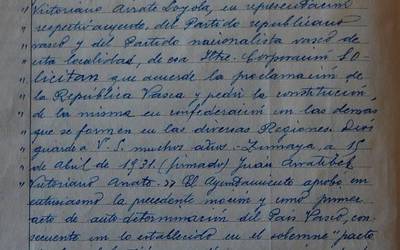 " Victoriano Arrate Loyola, en representación
" respectivamente, del Partido republicano
" vasco y del Partido nacionalista vasco de
" esta localidad, de esa Iltre. Corporación SO-
" licitan que acuerde la proclamación de
" la República Vasca y pedir la constitución
" de la misma en confederación con las demás
" que se formen en las diversas Regiones. Dios
" guarde a V. S. muchos años. - Zumaya, a 15
" de Abril de 1931. (firmado) Juan Arratibel
" Victoriano Arrate. El Ayuntamiento aprobó con
entusiasmo la precedente moción y como primer
acto de auto-determinación del País Vasco, con-
secuente con lo establecido en el solemne "pacto